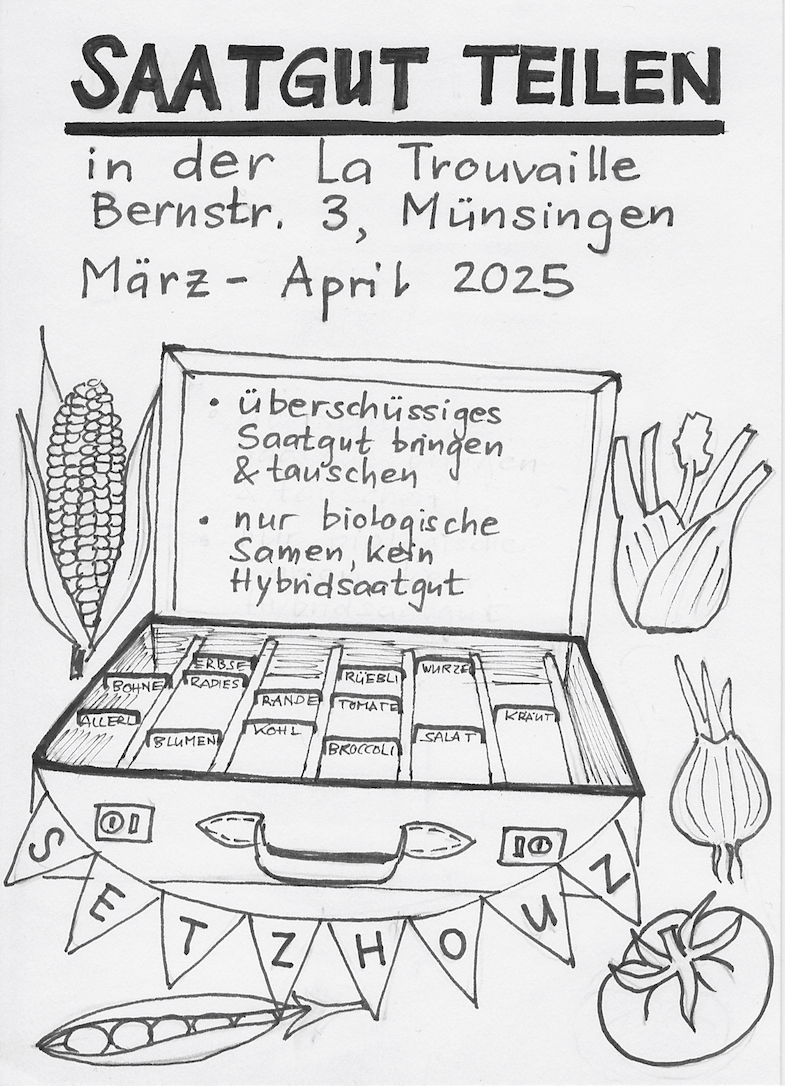 SAATGUT TEILEN
in der La Trouvaille
Bernstr. 3, Münsingen
März - April 2025
• überschüssiges
Saatgut bringen
& tauschen
• nur biologische
Samen, kein
Hybridsaatgut
ERBSE
WURZE
BOHNE
RADIES
RÜEBLI
RANDE
TOMATE
ALLERL
KRAUT
BLUMEN
KOHL
BROCCOLI
SALAT
SETZHOUZ